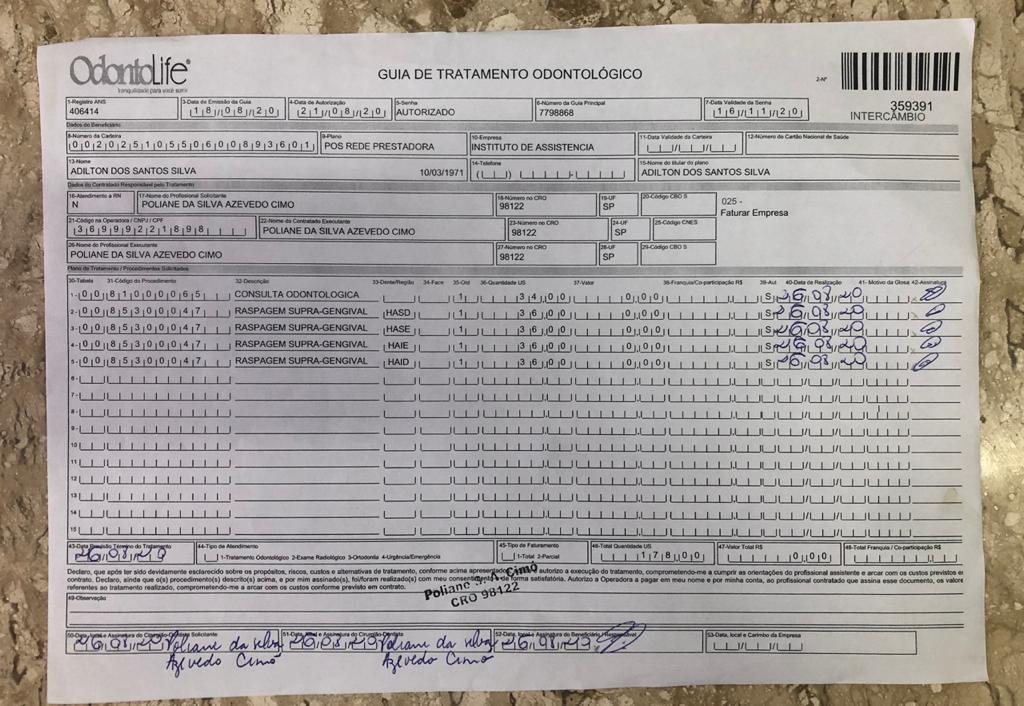 OdontoLife®
tranquilidade para você sorrir
GUIA DE TRATAMENTO ODONTOLÓGICO
2-Nº
359391
INTERCÂMBIO
1-Registro ANS 3-Data de Emissão da Guia 4-Data de Autorização 5-Senha 6-Número da Guia Principal 7-Data Validade da Senha
406414 18/08/20 21/08/20 AUTORIZADO 7798868 16/11/20
Dados do Beneficiário
8-Número da Carteira 9-Plano 10-Empresa 11-Data Validade da Carteira 12-Número do Cartão Nacional de Saúde
00202510550600893601 POS REDE PRESTADORA INSTITUTO DE ASSISTENCIA
13-Nome 14-Telefone 15-Nome do titular do plano
ADILTON DOS SANTOS SILVA 10/03/1971 ADILTON DOS SANTOS SILVA
Dados do Contratado Responsável pelo Tratamento
16-Atendimento a RN 17-Nome do Profissional Solicitante 18-Número no CRO 19-UF 20-Código CBO S
N POLIANE DA SILVA AZEVEDO CIMO 98122 SP
025 -
Faturar Empresa
21-Código na Operadora / CNPJ / CPF 22-Nome do Contratado Executante 23-Número no CRO 24-UF 25-Código CNES
36999221898 POLIANE DA SILVA AZEVEDO CIMO 98122 SP
26-Nome do Profissional Executante 27-Número no CRO 28-UF 29-Código CBO S
POLIANE DA SILVA AZEVEDO CIMO 98122 SP
Plano de Tratamento / Procedimentos Solicitados
30-Tabela 31-Código do Procedimento 32-Descrição 33-Dente/Região 34-Face 35-Qtd 36-Quantidade US 37-Valor 38-Franquia/Co-participação R$ 39-Aut 40-Data de Realização 41- Motivo da Glosa 42-Assinatura
1- 00 81000065 CONSULTA ODONTOLOGICA 1 34,00 0,00 S 26/08/20
2- 00 85300047 RASPAGEM SUPRA-GENGIVAL HASD 1 36,00 0,00 S 26/08/20
3- 00 85300047 RASPAGEM SUPRA-GENGIVAL HASE 1 36,00 0,00 S 26/08/20
4- 00 85300047 RASPAGEM SUPRA-GENGIVAL HAIE 1 36,00 0,00 S 26/08/20
5- 00 85300047 RASPAGEM SUPRA-GENGIVAL HAID 1 36,00 0,00 S 26/08/20
6-
7-
8-
9-
10
11
12
13
14
15
43-Data Previsão Término do Tratamento 44-Tipo de Atendimento 45-Tipo de Faturamento 46-Total Quantidade US 47-Valor Total R$ 48-Total Franquia / Co-participação R$
26/08/20 1-Tratamento Odontológico 2-Exame Radiológico 3-Ortodontia 4-Urgência/Emergência 1-Total 2-Parcial 178,00 0,00
Declaro, que após ter sido devidamente esclarecido sobre os propósitos, riscos, custos e alternativas de tratamento, conforme acima autorizo a execução do tratamento, comprometendo-me a cumprir as orientações do profissional assistente e arcar com os custos previstos em
contrato. Declaro, ainda que o(s) procedimento(s) descrito(s) acima, e por mim assinado(s), foi/foram realizado(s) com meu consentimento de forma satisfatória. Autorizo a Operadora a pagar em meu nome e por minha conta, ao profissional contratado que assina esse documento, os valores
referentes ao tratamento realizado, comprometendo-me a arcar com os custos conforme previsto em contrato.
Poliane S. A. Cimó
CRO 98122
49-Observação
50-Data, local e Assinatura do Cirurgião-Dentista Solicitante 51-Data, local e Assinatura do Cirurgião-Dentista 52-Data, local e Assinatura do Beneficiário / Responsável 53-Data, local e Carimbo da Empresa
26/08/20 Poliane da Silva 26/08/20 Poliane da Silva 26/08/20
Azevedo Cimó Azevedo Cimó